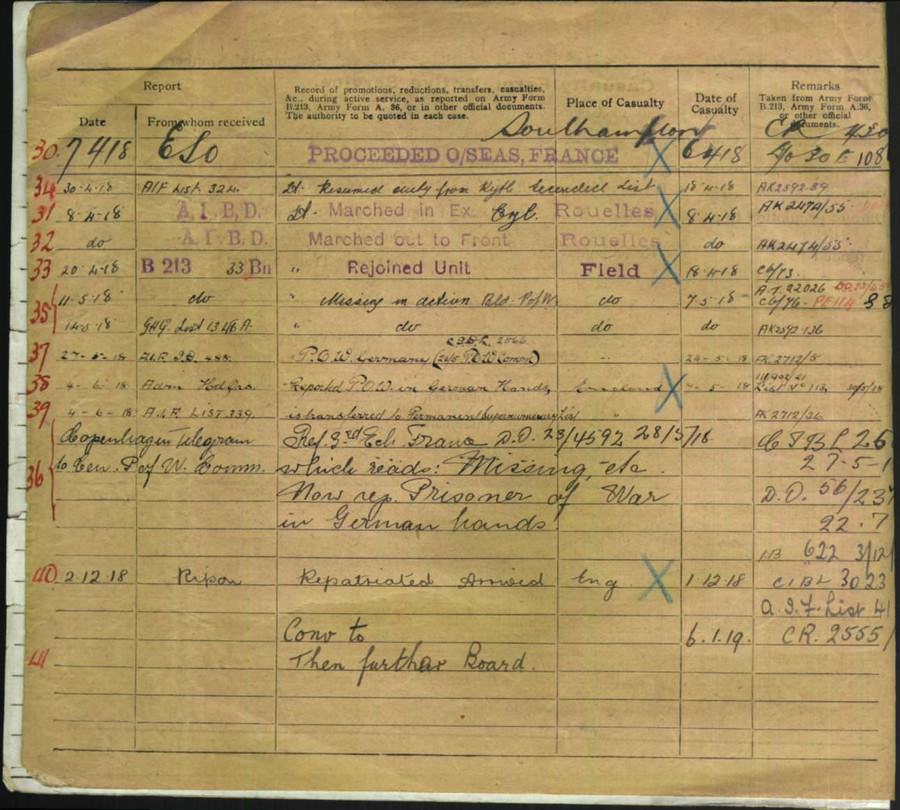 Report
Record of promotions, reductions, transfers, casualties,
&c., during active service, as reported on Army Form
B.213, Army Form A. 36, or in other official documents.
The authority to be quoted in each case.
Place of Casualty
Date of
Casualty
Remarks
Taken from Army Form
B.213, Army Form A.36,
or other official
documents.
Date
From whom received
Southampton
30. 7 4 18 ESO PROCEEDED O/SEAS, FRANCE X 6 4 18 1086
34 30-4-18 AIF List 324. Lt. Resumed duty from Seconded List 18-4-18 AK2592-89
31 8-4-18 A.I.B.D. Lt. Marched in Ex. Eng. Rouelles X 8-4-18 AK2474/55
32 do A.I.B.D. Marched out to Front Rouelles do AK2474/55
33 20-4-18 B 213 33 Bn " Rejoined Unit Field X 18-4-18 C6/73.
35 11-5-18 do " Missing in action do 7-5-18 A.T. 22026 C6/76
14-5-18 G.H.Q. List do do do AK2592-136
37 27-5-18 P.O.W. Germany 24-5-18 AK2712/5
38 4-6-18 Adm Hdqrs. Reported P.O.W. in German Hands, England X
39 4-6-18 A.I.F. LIST 339. is transferred to Permanent Supernumerary List " AK2712/36
36 Copenhagen Telegram Ref 3rd Ech. France D.O. 23/4592 28/5/18 C I B L 26
to Cen. P of W. Comm. which reads: Missing, etc. 27-5-1
Now rep. Prisoner of War D.O. 56/23
in German hands 22.7
622 3/12
40 2.12.18 Ripon Repatriated Arrived Eng X 1-12-18 CIBL 3023
A.I.F. List 41
Conv to 6.1.19. CR. 2555/
41 Then further Board.